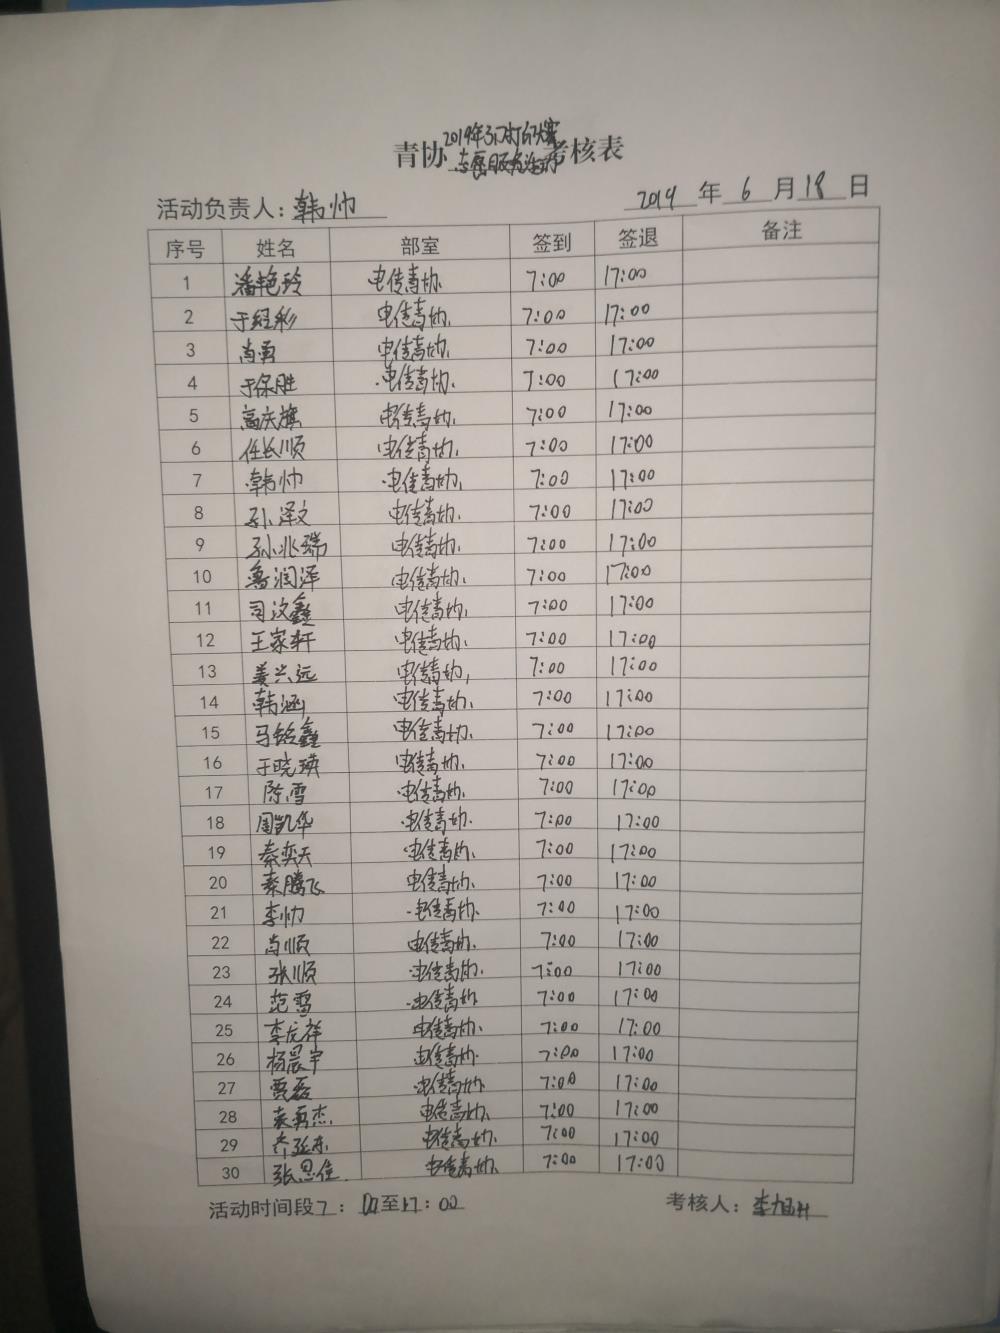 青协2019年3D打印大赛志愿服务活动考核表
活动负责人：韩帅 2019年6月18日
序号 姓名 部室 签到 签退 备注
1 潘艳玲 电信青协 7:00 17:00
2 于经彩 电信青协 7:00 17:00
3 肖勇 电信青协 7:00 17:00
4 于保胜 电信青协 7:00 17:00
5 高庆旗 电信青协 7:00 17:00
6 任长顺 电信青协 7:00 17:00
7 韩帅 电信青协 7:00 17:00
8 孙泽文 电信青协 7:00 17:00
9 孙兆瑞 电信青协 7:00 17:00
10 鲁润泽 电信青协 7:00 17:00
11 司汶鑫 电信青协 7:00 17:00
12 王家轩 电信青协 7:00 17:00
13 姜兴远 电信青协 7:00 17:00
14 韩涵 电信青协 7:00 17:00
15 马铭鑫 电信青协 7:00 17:00
16 于晓瑛 电信青协 7:00 17:00
17 陈雪 电信青协 7:00 17:00
18 周凯华 电信青协 7:00 17:00
19 秦奕天 电信青协 7:00 17:00
20 秦腾飞 电信青协 7:00 17:00
21 李帅 电信青协 7:00 17:00
22 肖顺 电信青协 7:00 17:00
23 张顺 电信青协 7:00 17:00
24 范雪 电信青协 7:00 17:00
25 李龙祥 电信青协 7:00 17:00
26 杨晨宇 电信青协 7:00 17:00
27 贾磊 电信青协 7:00 17:00
28 袁勇杰 电信青协 7:00 17:00
29 乔延东 电信青协 7:00 17:00
30 张思佳 电信青协 7:00 17:00
活动时间段7：00至17：00 考核人：李旭升